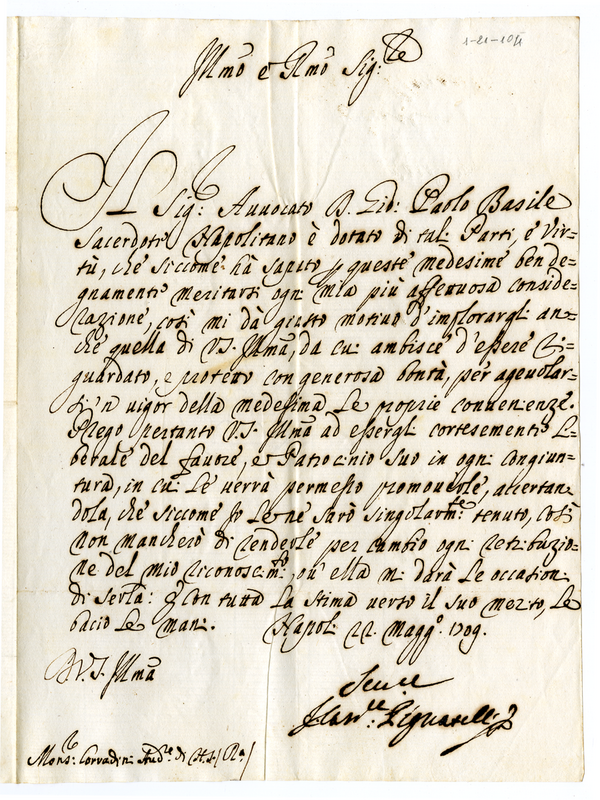 1-21-10
Illmo e Rmo Sig:re
Il Sig: Avvocato D. Gio: Paolo Basile
Sacerdote Napolitano è dotato di tali Parti, e Vir=
tù, che siccome hà saputo p queste medesime ben de=
gnamente meritarsi ogni mia più affettuosa conside=
razione, così mi dà giusto motivo d'implorargli an=
che quella di V.S. Illma, da cui ambisce d'essere ri=
guardato, e protetto con generosa bontà, per agevolar=
si in vigor della medesima le proprie convenienze.
Prego pertanto V.S. Illma ad essergli cortesemente Li=
berale del favore, e Patrocinio suo in ogni congiun=
tura, in cui Le verrà permesso promoverle, accertan=
dola, che siccome io Le ne sarò singolarmte tenuto, così
non mancherò di renderle per cambio ogni retribuzio=
ne del mio riconoscimto, ov'ella mi darà Le occasioni
di servirla: E con tutta La stima verso il suo merito, Le
bacio Le mani. Napoli 22. Maggo. 1709.
D V.S. Illma
Serve
Il Card.le Pignatelli
Mons: Corradini Audre di N.S. (Ra)